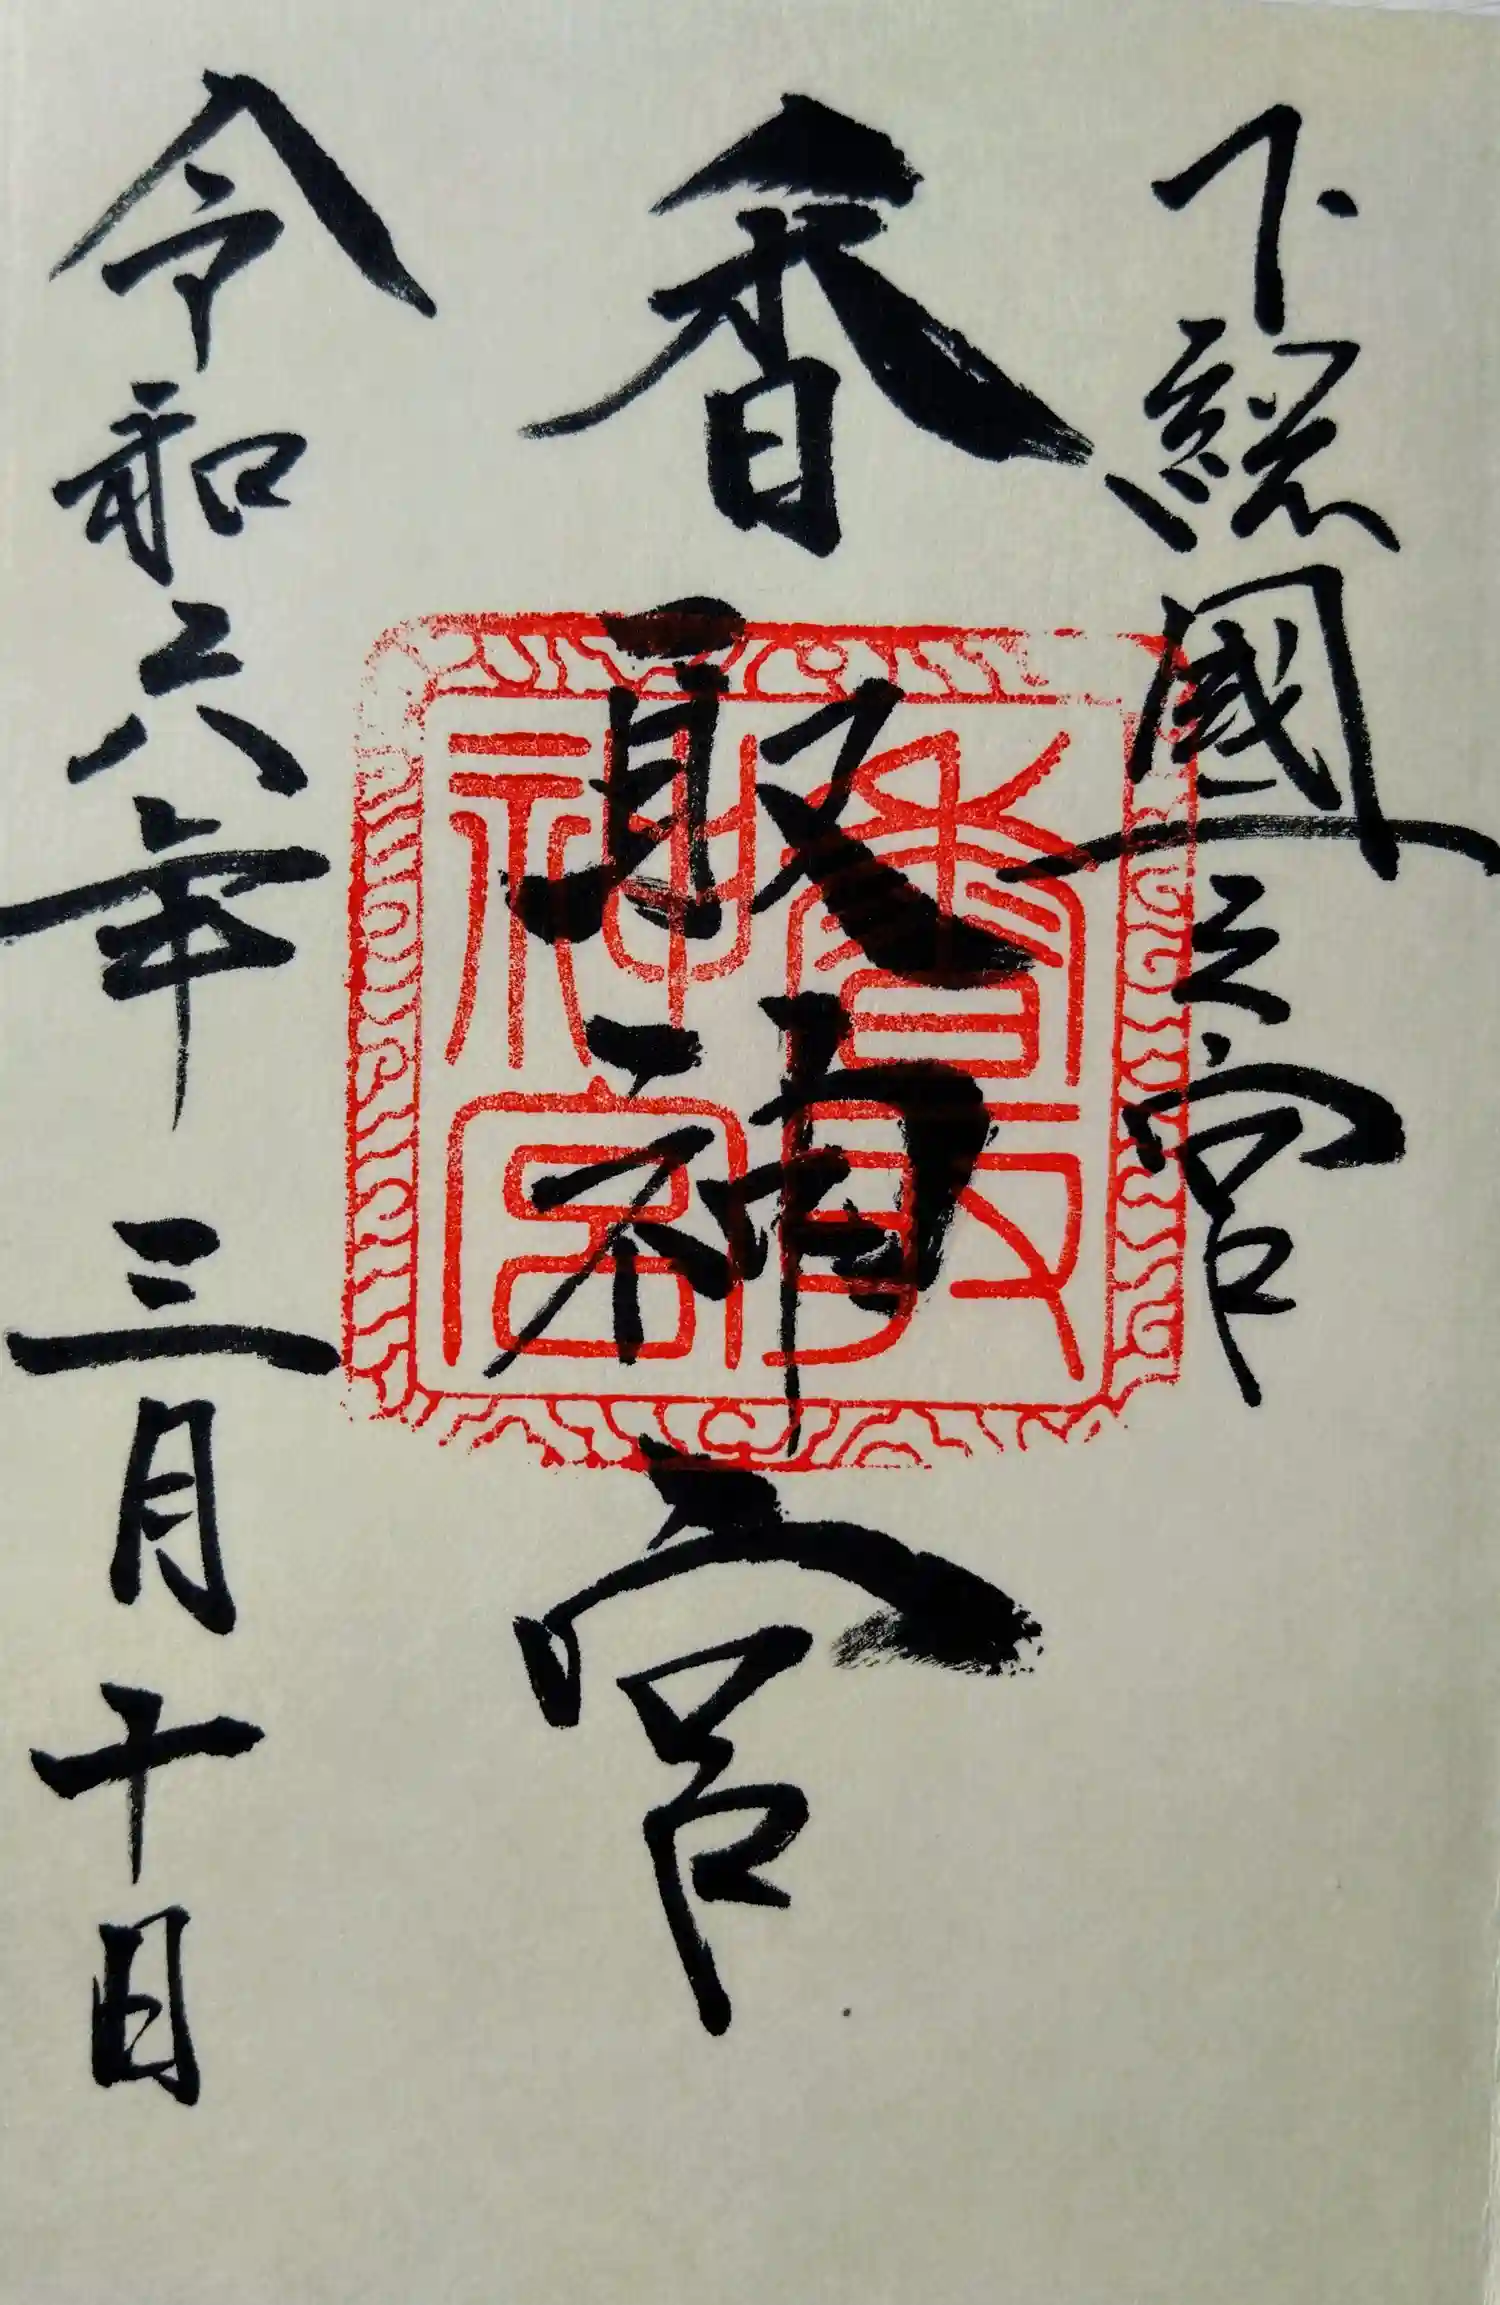 下総國一之宮
香取神宮
香取神宮
令和六年三月十日